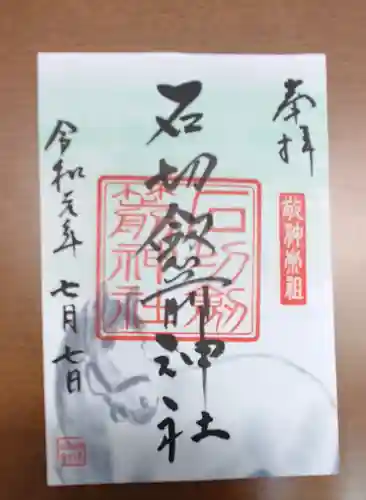 奉拝
敬神崇祖
石切劔箭神社
石切劔箭神社
令和元年 七月七日